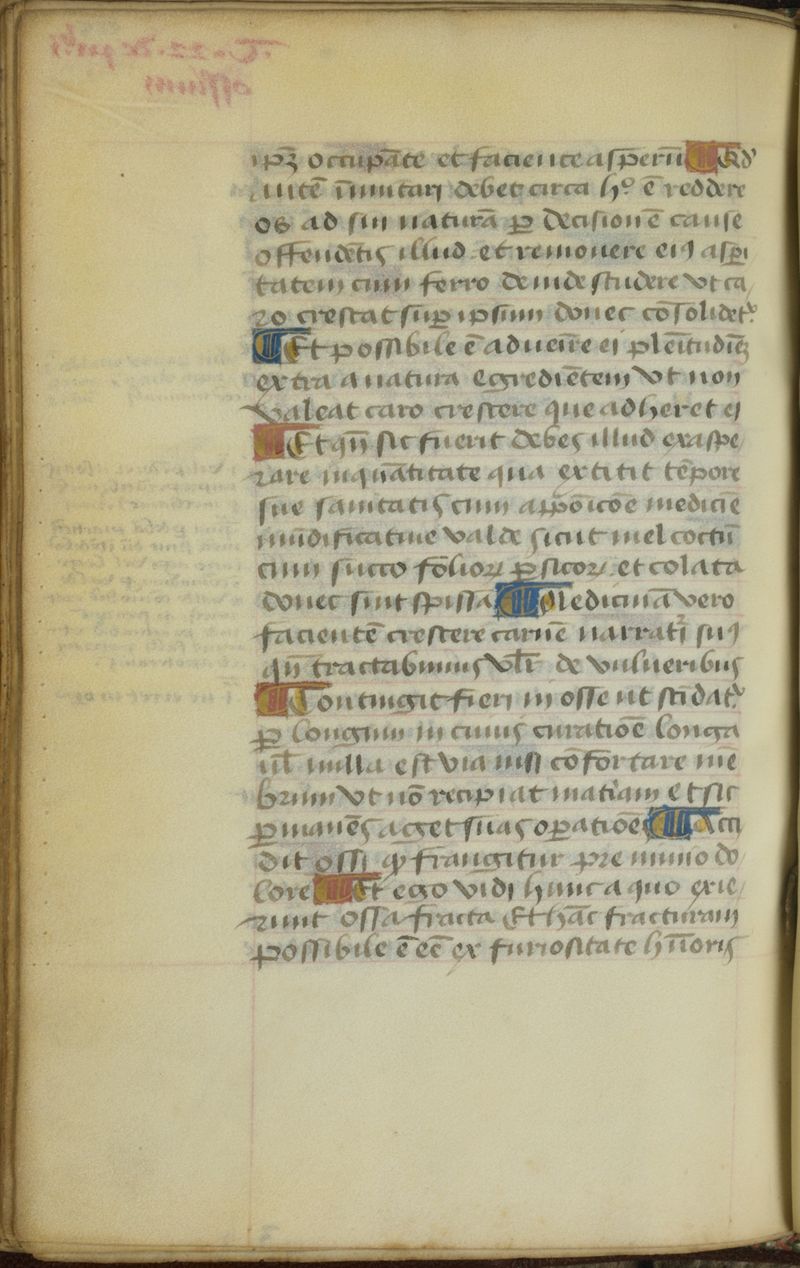 ipꝫ occupāte et faciente asperū ¶ Ad
autē īmitari debet circa hº ē reddere
os ad sui naturā ꝑ decisionē cause
offendētis illud et remouere eiꝰ aspi
tatem cum ferro deinde studere vt ca
ro crescat suꝑ ipsum donec cōsolidet᷑
¶ Et possibile ē aduenīre ei plēitudīē
extra a natura egrediētem vt non
valeat caro crescere que adheret ei
¶ Et qn̄ sic fuerit debes illud exaspe
rare in quātitate qua extitit tēpore
sue sanitatis cum appōicōe medicīe
mūdificatiue valde sicut mel coctū
cum succo folioꝝ ꝑsicoꝝ et colata
donec sint spissa ¶ Medicinā vero
facientē crescere carnē narratꝫ sūꝰ
qn̄ tractabimus vl̄r de vulneribus
¶ Contingit fieri in osse ut scīdat᷑
ꝑ longum in cuius curatiōe longa
ul̄ nulla est via nisi cōfortare mē
brum vt nō recipiat matiam et sic
ꝑmanēs aget suas oꝑatiōes ¶ Acci
dit ossi ꝙ frangitur pre nimio do
lore ¶ Et ego vidi hunc a quo exie
runt ossa fracta Et hāc fracturam
possibile ē eē ex furiositate hūoris